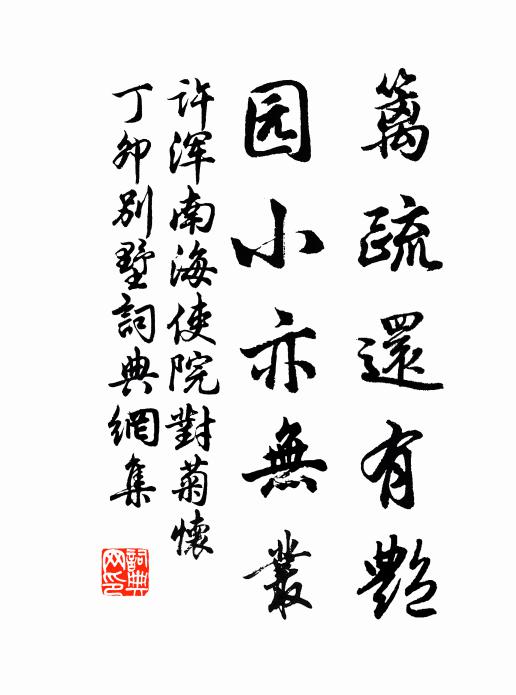 篱疏還有艷
园小亦無叢
许浑南海使院對菊懷
丁卯別墅詞典網集
詞典网印